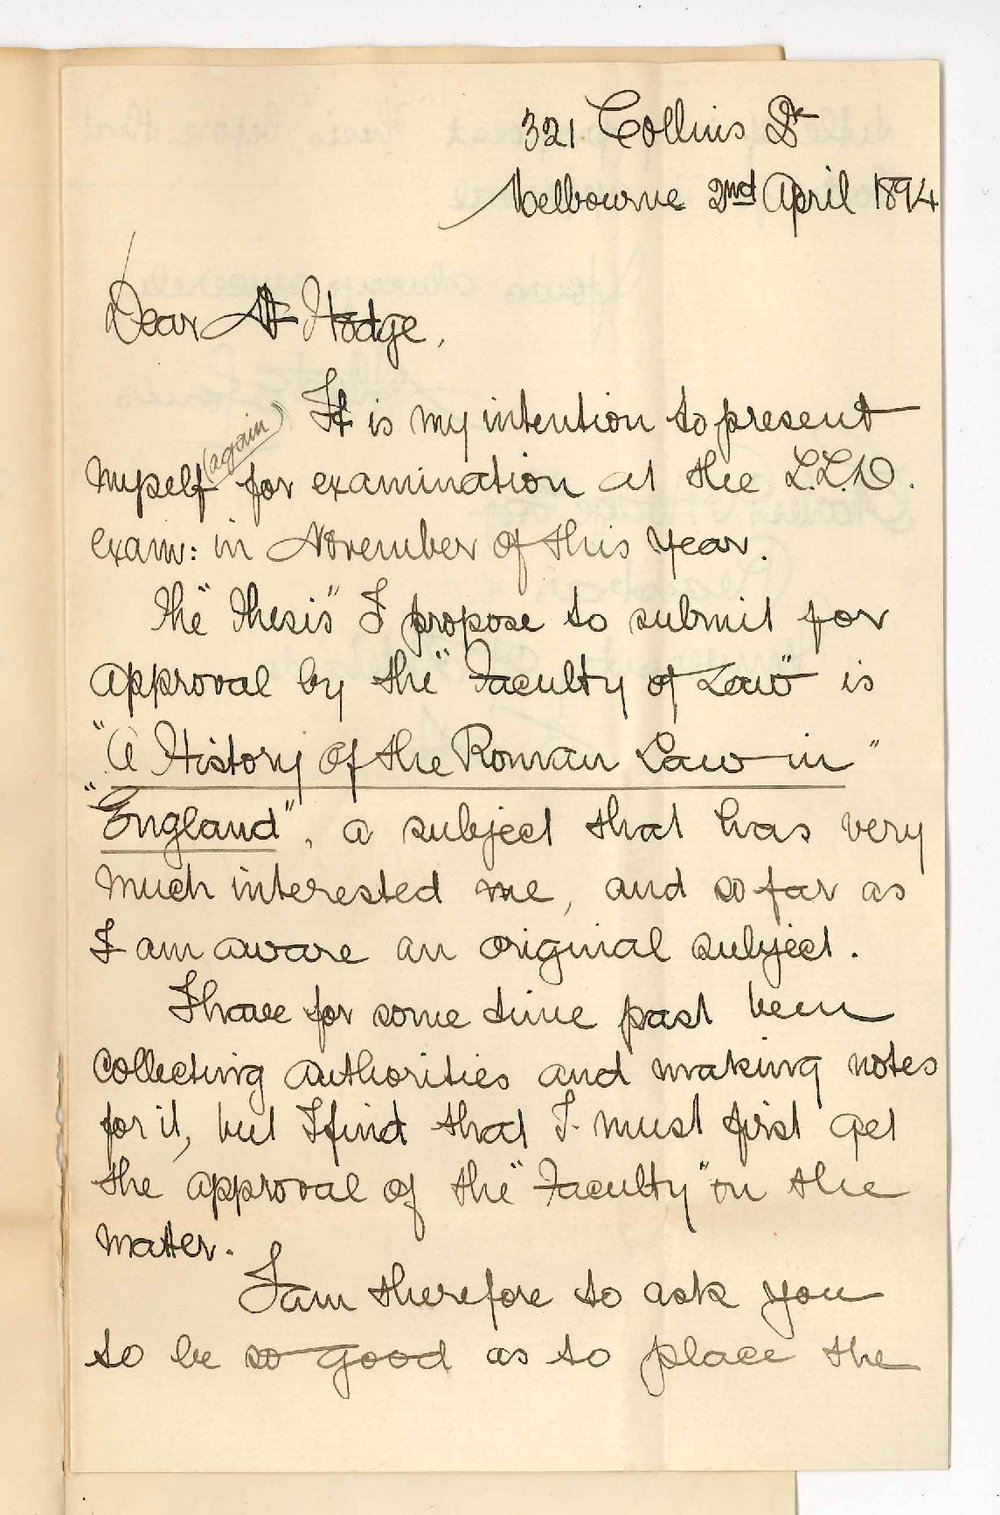 321 Collins St
Melbourne 2nd April 1894
Dear Mr Hodge,
It is my intention to present
myself (again) for examination at the L.L.D.
exam: in November of this year.
The "Thesis" I propose to submit for
approval by the "Faculty of Law" is
"A History of the Roman Law in"
"England", a subject that has very
much interested me, and so far as
I am aware an original subject.
I have for some time past been
collecting authorities and making notes
for it, but I find that I must first get
the approval of the "Faculty" on the
matter.
I am therefore to ask you
to be so good as to place the